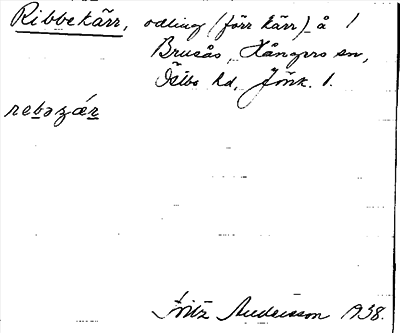 Ribbekärr, odling (förr kärr) å 1
Brusås, Hångers sn,
Östbo hd, Jönk. l.
rebəʒǽr
Fritz Andersson 1938.